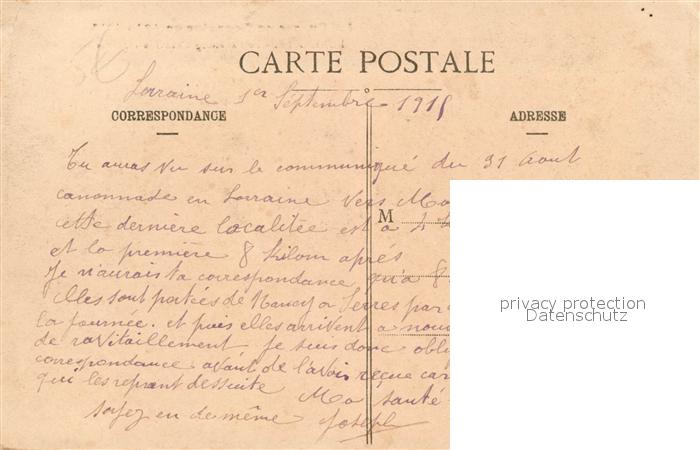 CARTE POSTALE
Lorraine 1er Septembre 1915
CORRESPONDANCE
ADRESSE
Tu auras vu sur le communiqué du 31 Aout
canonnade en Lorraine vers Mo
cette dernière localitée est à 4
M
et la première 8 kilom après
Je n'aurais ta correspondance qu'à 8
Elles sont portées de Nancy a Serres par
la journée. et puis elles arrivent a nou
de ravitaillement je suis donc obli
correspondance avant de l'avoir reçue car
qui les reprent dessuite Ma santé
soyez en de même Joseph
privacy protection
Datenschutz